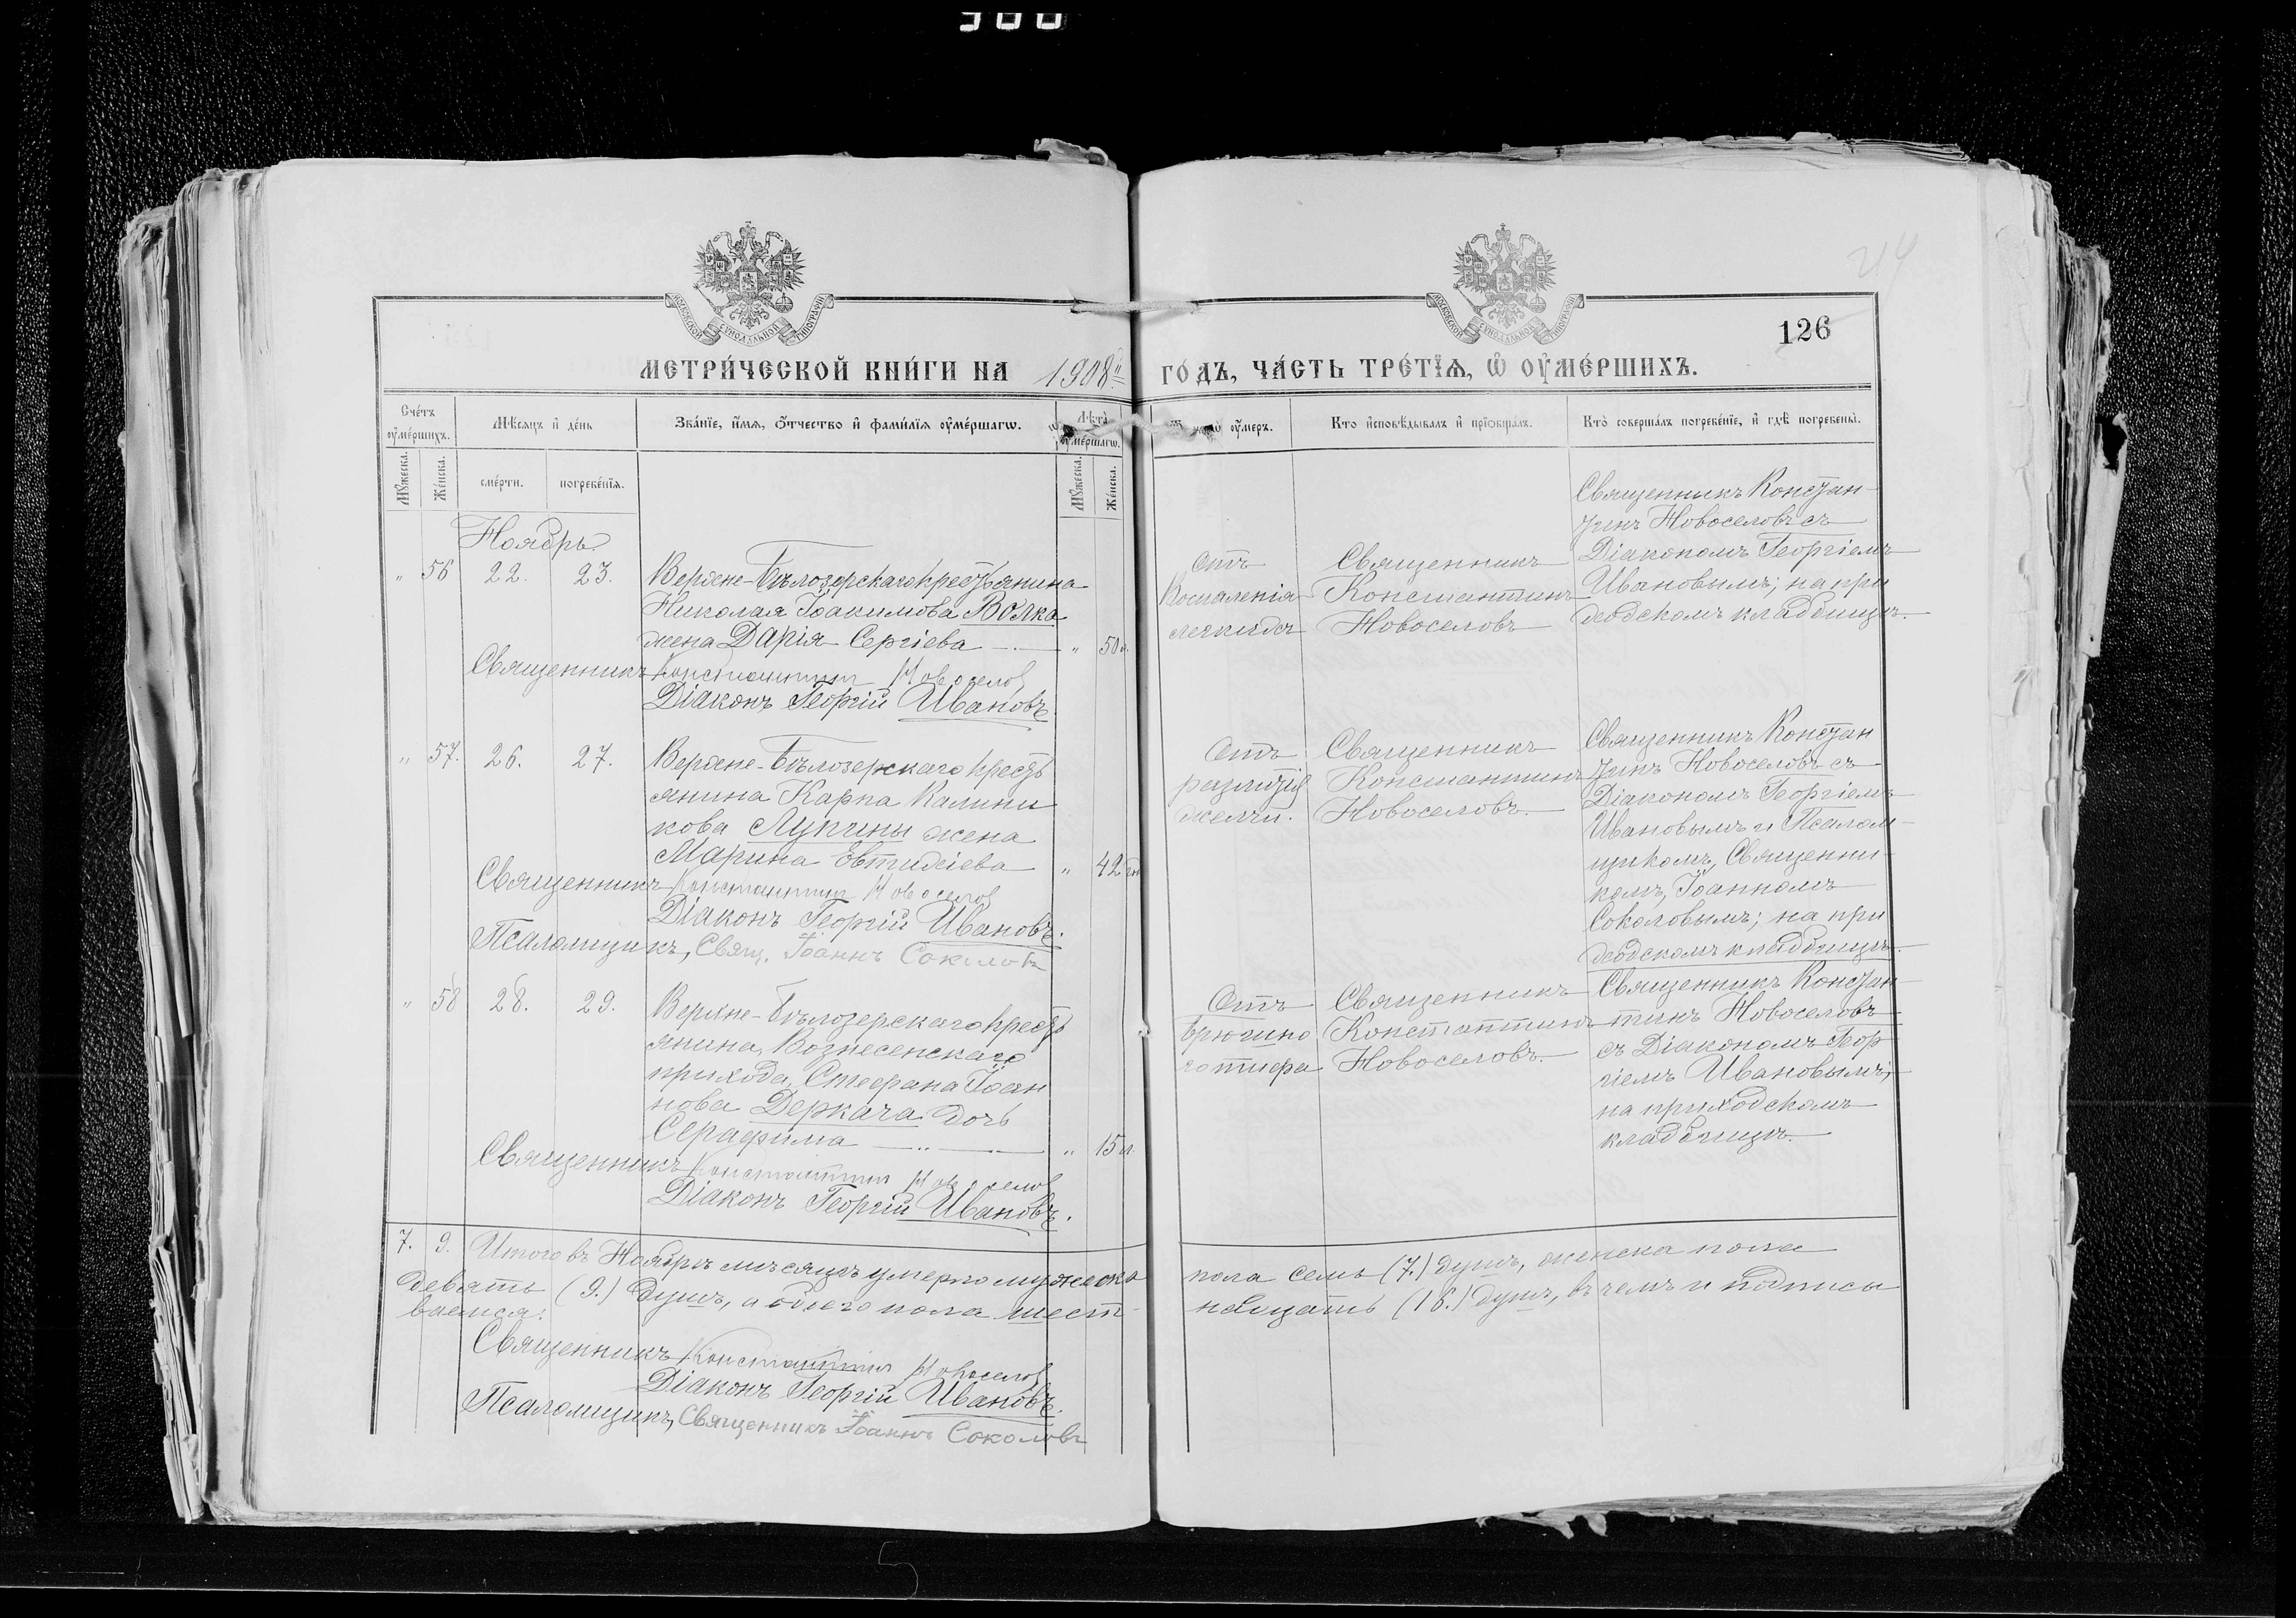 300
214
126
МОСКОВСКОЙ СѴНОДАЛЬНОЙ ТИПОГРАФІИ
МОСКОВСКОЙ СѴНОДАЛЬНОЙ ТИПОГРАФІИ
МЕТРИ́ЧЕСКОЙ КНИ́ГИ НА 1908й ГО́ДЪ, ЧА́СТЬ ТРЕ́ТЇѦ, Ѽ ОУ҆МЕ́РШИХЪ.
Сче́тъ оу҆ме́ршихъ.
Мꙋ́жеска.
Же́нска.
Мѣ́сяцъ и҆ де́нь
сме́рти.
погребе́нїѧ.
Зва́нїе, и҆́мѧ, ѻ҆́тчество и҆ фами́лїѧ оу҆ме́ршагѡ.
Лѣ́та оу҆ме́ршагѡ.
Мꙋ́жеска.
Же́нска.
оу҆́меръ.
Кто̀ и҆сповѣ́дывалъ и҆ прїѡбща́лъ.
Кто̀ соверша́лъ погребе́нїе, и҆ гдѣ̀ погребены̀.
Ноябрь.
" 56 22. 23. Верхне-Бѣлозерскаго крестьянина
Николая Іоакимова Волка
жена Дарія Сергіева " 50 л.
Священникъ Константин Новоселов
Діаконъ Георгій Ивановъ.
Отъ
Воспаленія
легкихъ
Священникъ
Константинъ
Новоселовъ
Священникъ Констан-
тинъ Новоселовъ съ
Діакономъ Георгіемъ
Ивановымъ; на при
ходскомъ кладбищѣ.
" 57. 26. 27. Верхне-Бѣлозерскаго кресть
янина Карпа Калини
кова Лупины жена
Марина Евтихіева " 42
Священникъ Константин Новоселов
Діаконъ Георгій Ивановъ.
Псаломщикъ, Свящ. Іоаннъ Соколовъ
Отъ
разлитія
желчи.
Священникъ
Константинъ
Новоселовъ.
Священникъ Констан
тинъ Новоселовъ съ
Діакономъ Георгіемъ
Ивановымъ и Псалом-
щикомъ, Священни-
комъ, Іоанномъ
Соколовымъ; на при
ходскомъ кладбищѣ.
" 58 28. 29. Верхне-Бѣлозерскаго кресть
янина, Вознесенскаго
прихода, Стефана Іоан
нова Деркача дочь
Серафима " 15 л.
Священникъ Константин Новоселов
Діаконъ Георгій Ивановъ.
Отъ
брюшно
го тифа
Священникъ
Константинъ
Новоселовъ.
Священникъ Констан-
тинъ Новоселовъ
съ Діакономъ Геор
гіемъ Ивановымъ;
на приходскомъ
кладбищѣ.
7. 9. Итого въ Ноябрѣ мѣсяцѣ умерло мужеска пола семь (7.) душъ, женска пола
девять (9.) душъ, а обоего пола шест- надцать (16.) душъ, въ чемъ и подписы
ваемся:
Священникъ Константин Новоселов
Діаконъ Георгій Ивановъ.
Псаломщикъ, Священникъ Іоаннъ Соколовъ